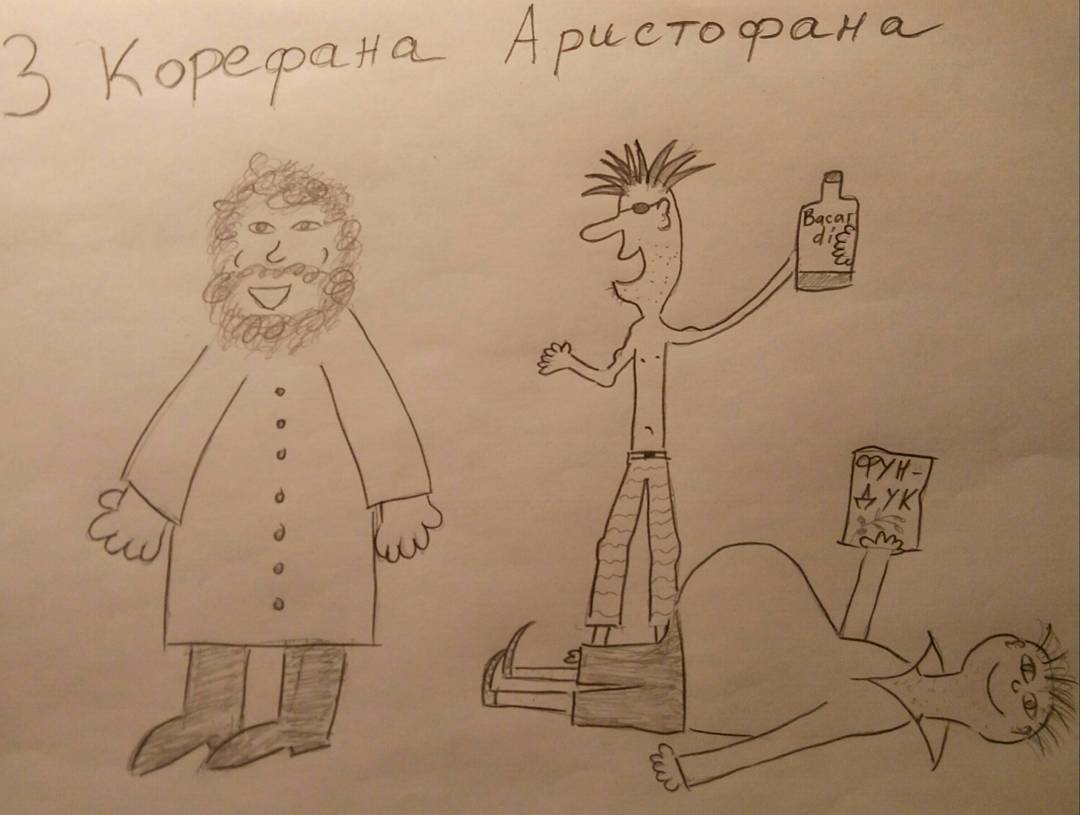 3 Корефана Аристофана
Bacar
di
ФУН-
ДУК